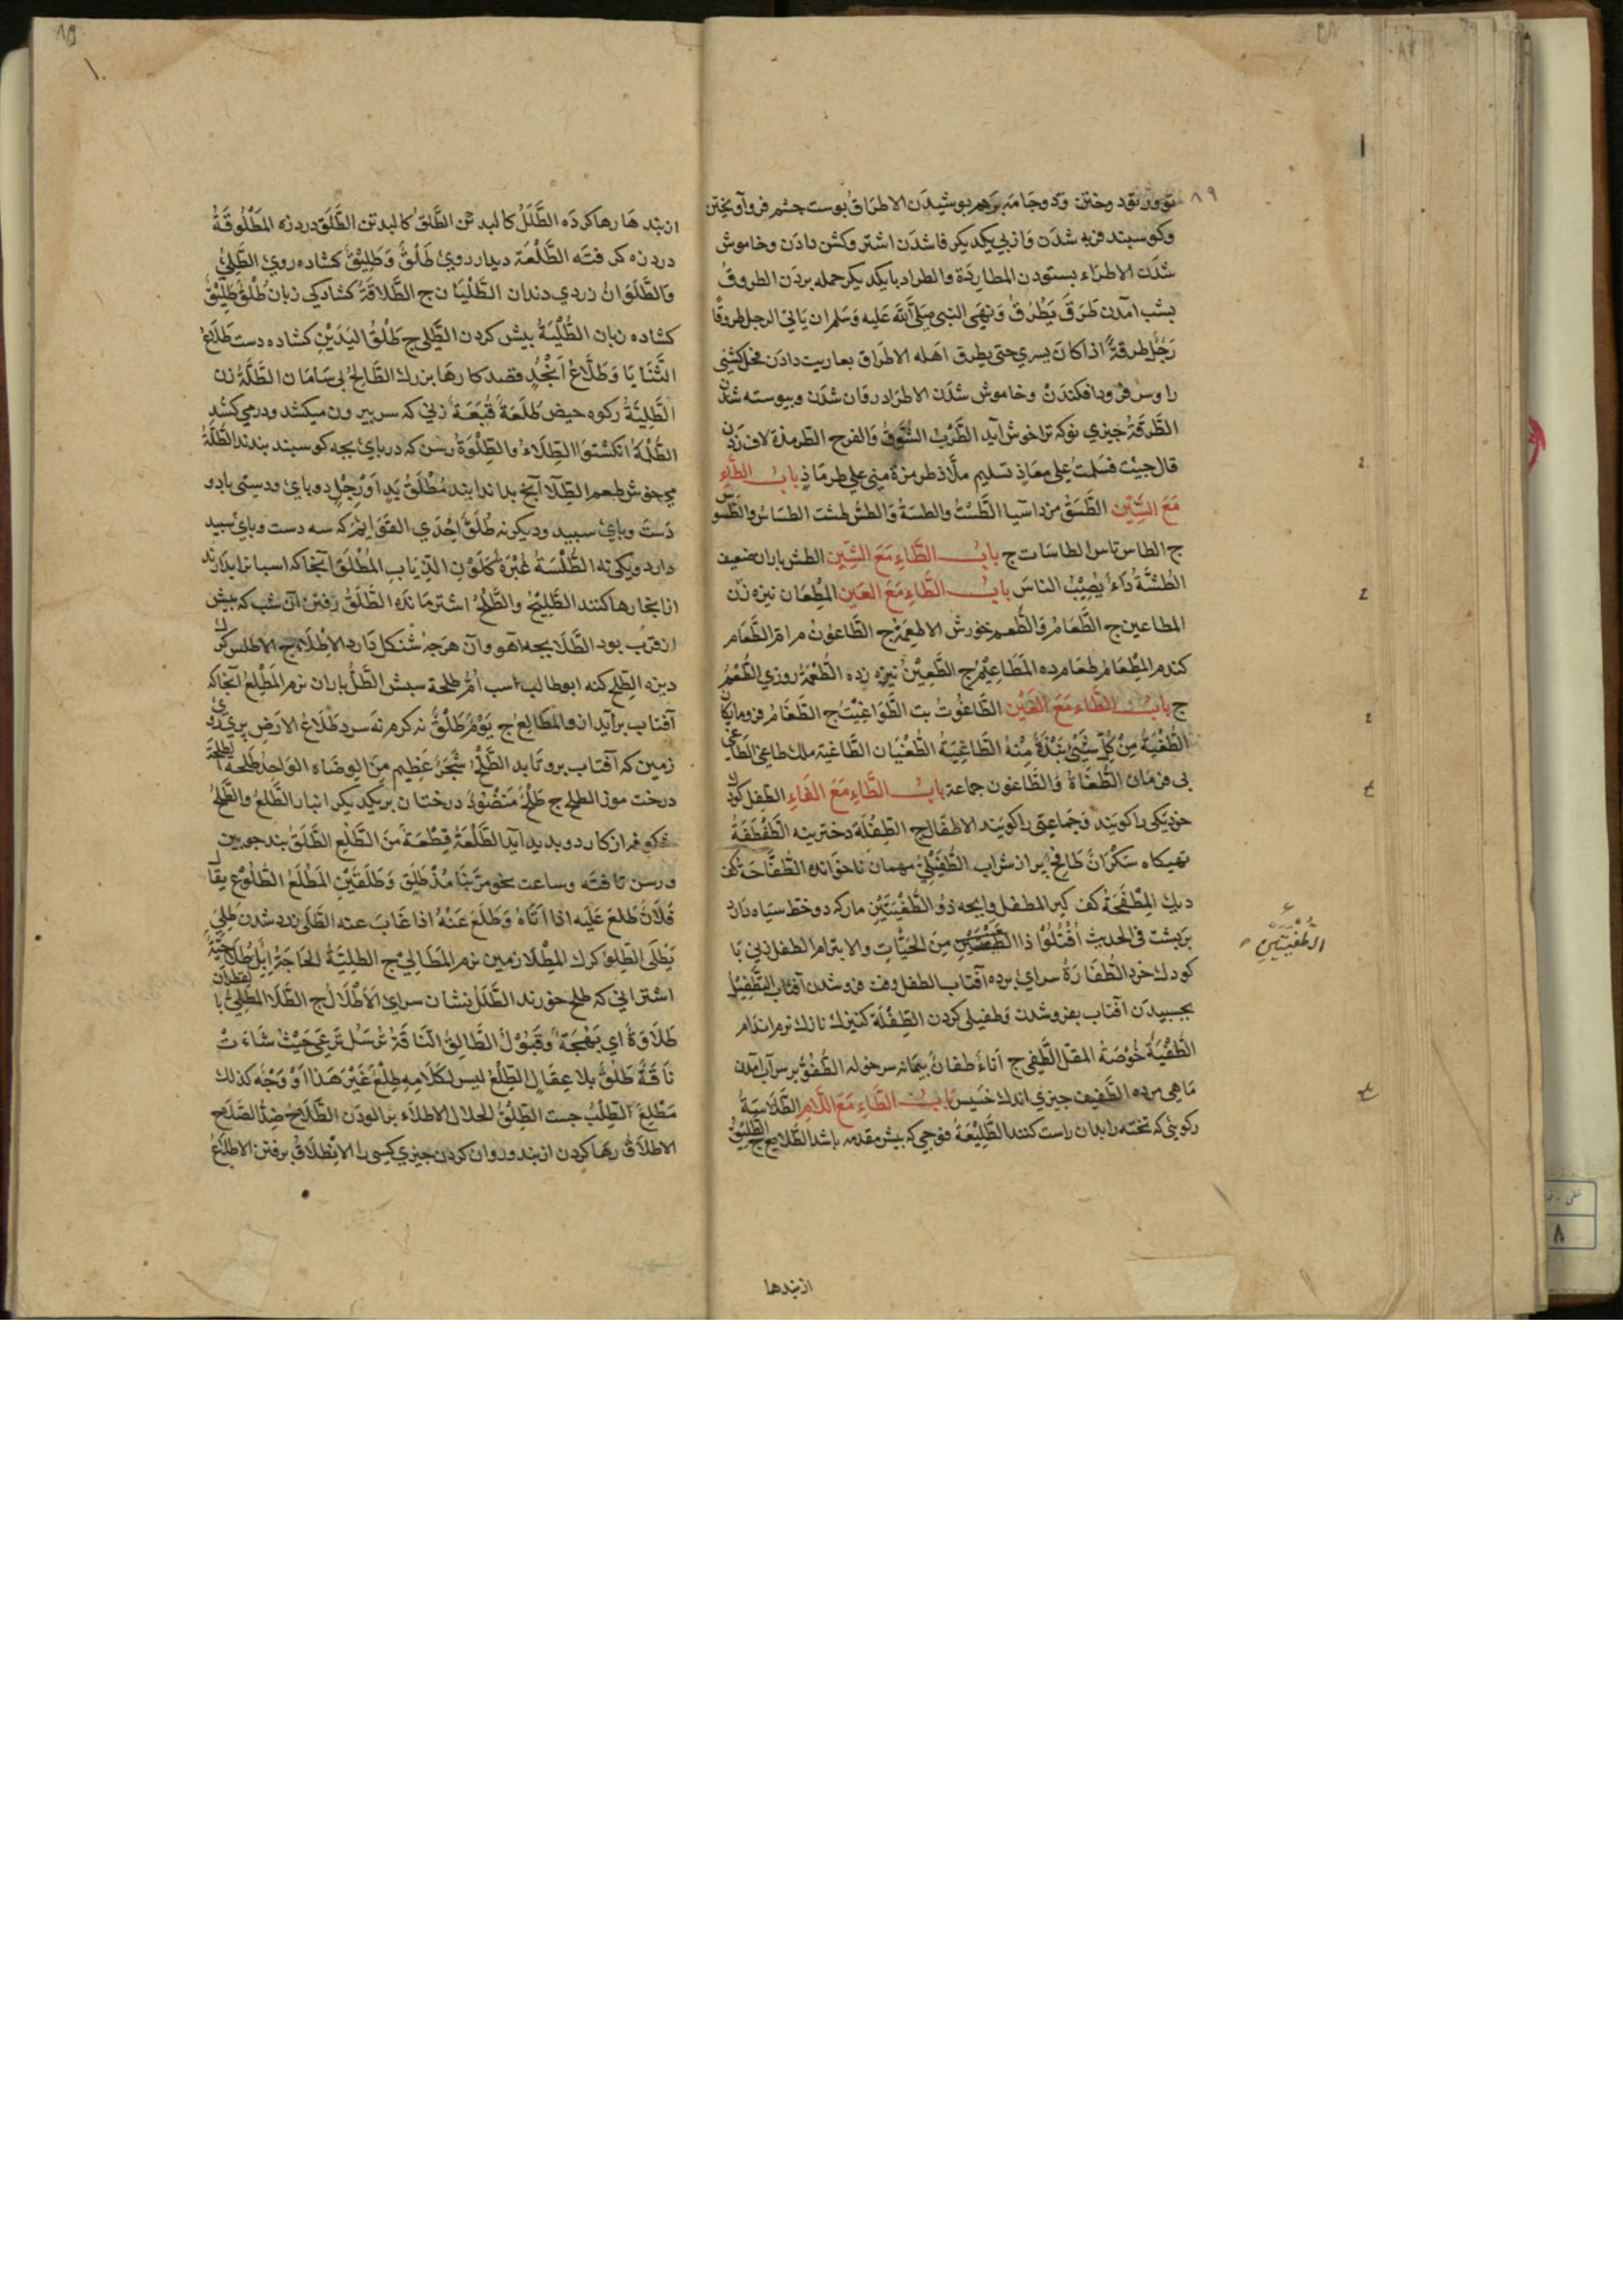 ٨٩
تو ور تو د وختن و دو جامه برهم بوشیدن الاطراق بوست چشم فرو آویختن
وکوسبند فربه شدن و از بی یکدیکر فا شدن اشتر وکشن دادن وخاموش
شدن الاطراء بستودن المطاردة والطراد با یکدیکر حمله بردن الطروق
بشب آمدن طَرَقَ یَطْرُقُ وَنَهَی النبی صَلَّی اللّه عَلیه وَسَلم ان یاتی الرجل طروقًا
رَجُل طرقةٌ اذا کان یسری حتی یطرق اهله الاطراق بعاریت دادن فحل کشنی
را وسر فرود افکندن وخاموش شدن الاطراد روان شدن وبیوسته شدن
الطَّرفَةُ چیزی نو که ترا خوش آید الطَّرَبُ الشَّوقُ وَالفرح الطرمذة لاف زدن
قال جیت فسلمت علی معاذ تسلیم ملاذ طرمزة منی علی طرماذ باب الطَّاءِ
مَعَ السِّین الطَّسَقُ مزد آسیا الطَّسْتُ والطسة وَالطس طشت الطساس والطسوس
ج الطاس تاس الطاسات ج باب الطَّاءِ مَعَ الشِّین الطش باران ضعیف
الطُشَّةُ دَاءٌ یُصِیْبُ الناسَ باب الطَّاءِ مَعَ العَین المِطْعَان نیزه زن
المطاعین ج الطَّعَامُ وَالطُّعم خورش الاطعمة ج الطَّاعون مرک الطَّعَام
کندم المِطْعَامُ طعام ده المَطَاعِیْمُ ج الطَّعِیْنُ نیزه زده الطُّعْمَةُ روزی الطُّعَمُ
ج باب الطَّاء مَعَ الغَیْن الطَّاغُوتُ بت الطَّوَاغِیْتُ ج الطَّغَامُ فرومایکان
الطُّغْیَةُ مِنْ کُلِّ شَیْیٍٔ نَبْذَةٌ مِنْهُ الطَّاغِیَةُ الطُّغْیَان الطَّاغیة ملک طاغی الطَّاغی
بی فرمان الطُّغَاةُ وَالطَّاغون جماعة باب الطَّاءِ مَعَ الفَاءِ الطِّفل کودک
خرد یکی را کویند و جماعتی را کویند الاطفال ج الطِّفْلَة دخترینه الطَّفْطَفَةُ
تهیکاه سَکْرَانُ طَافِحٌ بر از شراب الطُّفَیْلِیُّ مهمان ناخوانده الطُّفَّاحَةُ کف
دیک المِطْفَحَةُ کف کیر المطفل وابچه ذُو الطُّفْیَتَیْنِ مار که دو خط سیاه دارد
بر بشت فی الحدیث اُقْتُلُوْا ذا مِنَ الحَیَّاتِ والابتر ام الطفل زنی با
الطُّفْیَتَیْنِ
کودک خرد الطُّفَارَةُ سرای برده آفتاب الطفل وقت فروشدن آفتاب التَّطْفِیْلُ
بجسبیدن آفتاب بفروشدن وطفیلی کردن الطِّفْلَة کنیزک نازک نرم اندام
الطُّفْیَةُ خُوْصَةُ المقل الطُّفی ج اَناءٌ طفانُ بیمانه سرخوله الطُّفُوُّ بر سر آب آمدن
مَاهی مرده الطَّفیف چیزی اندک خَسیس باب الطَّاءِ مَعَ اللَّامِ الطَّلَاسَةُ
رکویی که تخته را بدان راست کنند الطَّلِیْعَةُ فوجی که بیش مقدمه باشد الطَّلایع ج الطَّلِیْقُ
از بندها
از بند هَا رها کرده الطَّلَلُ کالبد تن الطَّلَقُ کالبد تن الطَّلَق درد زه المَطْلُوقَةُ
درد زه کرفته الطَّلْعَة دیدار روی طَلْقٌ وَطَلِیْقٌ کشاده روی الطَّلِیُّ
وَالطَّلَوَانُ زردی دندان الطُّلْیَان ج الطَّلَاقَةُ کشادکی زبان طُلْقٌ طَلِیْقٌ
کشاده زبان الطُّلْیَةُ بیش کردن الطُّلی ج طَلْقُ الیَدَیْنِ کشاده دست طَلَاعُ
الثَّنَایَا وَطَلَّاعُ اَنْجُدٍ قصد کارها بزرک الطَّالِحُ بی سَامَان الطَّلَّةُ زن
الطَّلِیَّةُ رکوه حیض طُلَعَةٌ قُبَعَةٌ زنی که سر بیرون میکشد ودر می کشد
الطُّلْمَةُ انکشتوا الطِّلَاءُ والطِّلْوَةُ رسن که در بای بچه کوسبند بندند الطُّلَّةُ
می خوش طعم الطِّلَا آنج بدان اندایند مُطْلَقُ یَدٍ اَوْ رِجْلٍ دو بای ودستی با دو
دَست وبای سبید ودیکر نه طُلُقُ اِحْدَی القَوَایِٔم که سه دست وبای سبید
دارد ویکی نه الطُّلْسَةُ غُبْرَةٌ کَلَوْنِ الذِّیَابِ المُطْلَقُ آنجا که اسبان را بدارند
از انجا رها کنند الطَّلِیْحُ والطِّلْحُ اشتر مانده الطَّلَقُ رفتن آن شب که بیش
از قرب بود الطَّلَا بچه آهو وآن هرچه شنکل دارد الاِطْلَاءُ ج الاطلس کرک
دیزه الطِّلح کنه ابو طالب اسب اُمُّ طلحة سبش الطَّلُّ باران نرم المَطْلِعُ آنجا که
آفتاب برآید از و المَطَالِعُ ج یَوْمٌ طَلْقٌ نه کرم نه سرد طَلَاعُ الاَرضِ بری روی
زمین که آفتاب بروتابد الطَّلْحُ شَجَرٌ عَظِیم مِنَ الوضاه الوَاحِدُ طَلْحَة
درخت موز الطلح ج طَلْحٌ مَنْضُوْدٌ درختان بر یکدیکر انبار الطَّلْعُ والطَّلْحُ
شکوفه از کاردو بدید آید الطَّلْعَةُ قِطْعَةٌ مِنَ الطَّلْعِ الطَّلَقُ بند چوبین
ورسن تافته وساعت طَلَقٍ وَطَلَقَیْنِ المَطْلَعُ الطُّلُوْع یقال
فُلَانٌ طَلَعَ عَلَیْه اذا اَتَاهُ وَطَلَعَ عَنْهُ اذا غَابَ عنه الطَّلَی زرد شدن طَلِیَ
یَطْلَی الطِّلْوُ کرک المِطْلَا زمین نرم المَطَالِیْ ج الطلِیَّةُ الحَاجَةُ اِبِلٌ طَلَاحِیَّةٌ
اشترانی که طلح خورند الطَّلَلُ نشان سرای الاَطْلَالُ ج الطَّلَا المَطْلِیُّ بالقطران
طَلَاوَةُ ای بَهْجَةٌ وَقَبُوْلُ الطَّالِقُ النَّاقَةُ تُرْسَلُ تَرْعَی حَیْثُ شَاءَتْ
نَاقَةٌ طَلْقٌ بلا عِقَالٍ الطِّلْعُ لیس لِکَلَامِهِ طِلْعٌ غَیْرَ هَذا اَوْ وَجْهٌ کذلک
مَطْلِعٌ الطِّلْبُ جست الطِّلْقُ الحلال الاطلاء برالودن الطَّلَاحُ ضِدُّ الصَّلَاحِ
الاطلَاقُ رها کردن از بند و روان کردن چیزی کسی را الاِنْطِلَاقُ برفتن الاطلاع